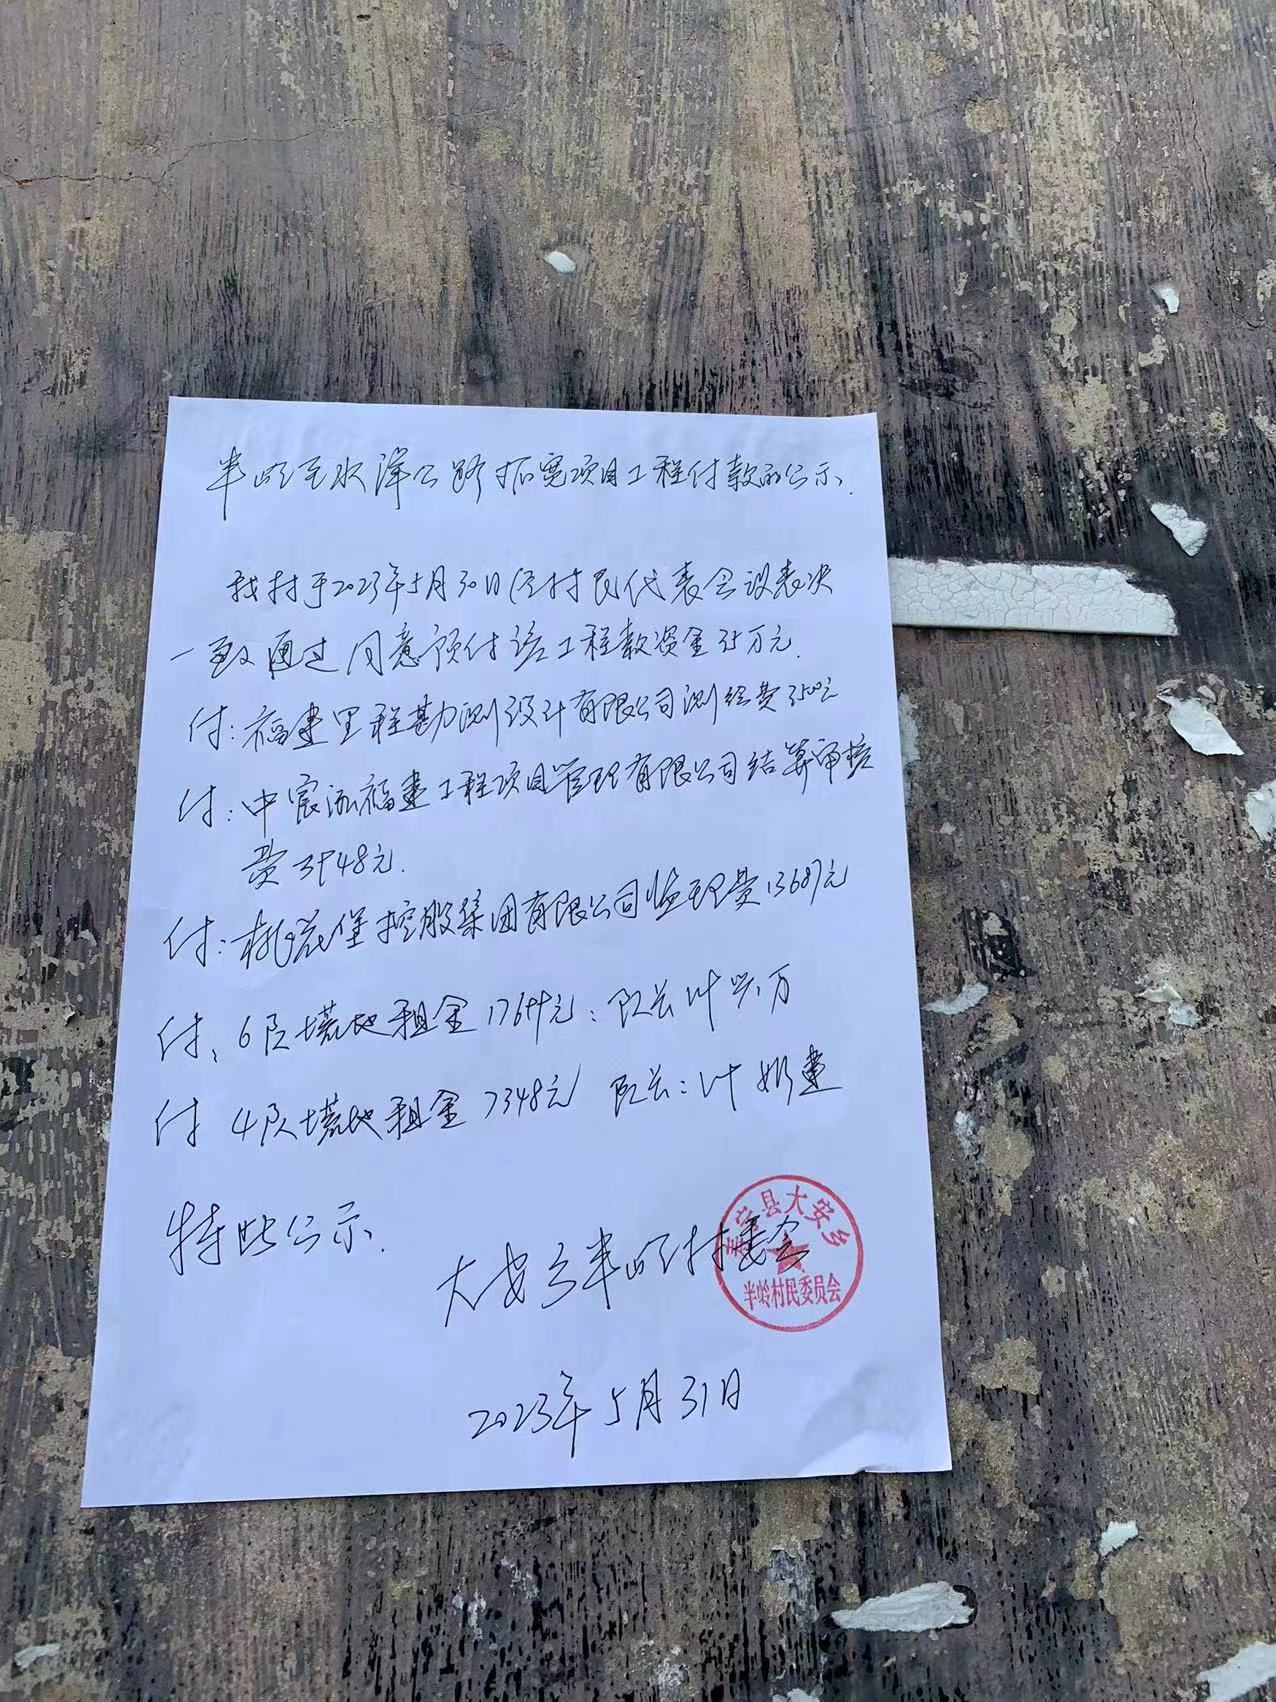 半岭至水洋公路拓宽项目工程付款的公示.
我村于2023年5月30日经村民代表会议表决
一致通过同意预付该工程款资金35万元.
付:福建里程勘测设计有限公司测绘费3500元
付:中宸泓福建工程项目管理有限公司结算审核
费3948元.
付:桃花堡控股集团有限公司监理费13687元
付:6队塔地租金17644元:队长叶兴万
付 4队塔地租金7348元 队长:叶 建
特此公示.
大安乡半岭村委会
寿宁县大安乡
半岭村民委员会
2023年5月31日